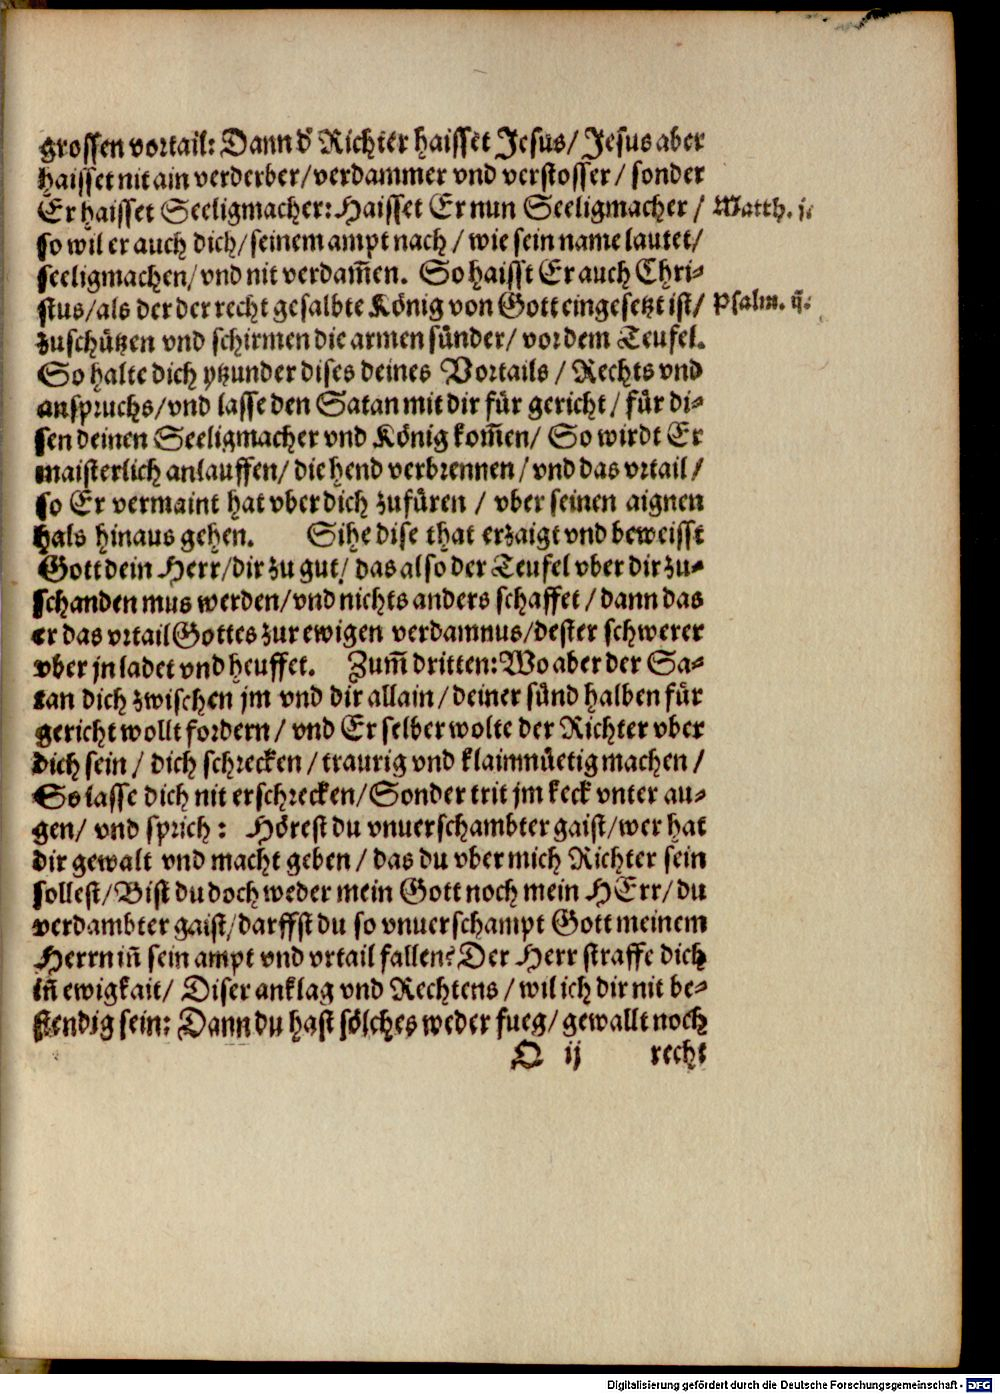 grossen vortail: Dann d̕ Richter haisset Jesus/ Jesus aber
haisset nit ain verderber/verdammer vnd verstosser/ sonder
Er haisset Seeligmacher: Haisset Er nun Seeligmacher / Matth. j.
so wil er auch dich/seinem ampt nach / wie sein name lautet/
seeligmachen/vnd nit verdam̃en. So haisst Er auch Chri⸗
stus/als der der recht gesalbte König von Gott eingesetzt ist/ Psalm. ij.
zuschützen vnd schirmen die armen sünder/ vor dem Teufel.
So halte dich ytzunder dises deines Vortails / Rechts vnd
anspruchs/vnd lasse den Satan mit dir für gericht/ für di⸗
sen deinen Seeligmacher vnd König kom̃en/ So wirdt Er
maisterlich anlauffen/ die hend verbrennen/ vnd das vrtail/
so Er vermaint hat vber dich zufüren / vber seinen aignen
hals hinaus gehen. Sihe dise that erzaigt vnd beweisst
Gott dein Herr/dir zu gut/ das also der Teufel vber dir zu⸗
schanden mus werden/vnd nichts anders schaffet / dann das
er das vrtail Gottes zur ewigen verdamnus/dester schwerer
vber jn ladet vnd heuffet. Zum̃ dritten: Wo aber der Sa⸗
tan dich zwischen jm vnd dir allain/ deiner sünd halben für
gericht wollt fordern / vnd Er selber wolte der Richter vber
dich sein / dich schrecken / traurig vnd klainmüetig machen /
So lasse dich nit erschrecken/Sonder trit jm keck vnter au⸗
gen/ vnd sprich : Hörest du vnuerschambter gaist/wer hat
dir gewalt vnd macht geben / das du vber mich Richter sein
sollest/Bist du doch weder mein Gott noch mein HErr/ du
verdambter gaist/darffst du so vnuerschampt Gott meinem
Herrn iñ sein ampt vnd vrtail fallen? Der Herr straffe dich
iñ ewigkait/ Diser anklag vnd Rechtens / wil ich dir nit be⸗
stendig sein: Dann du hast sölches weder fueg/ gewallt noch
O ij recht
Digitalisierung gefördert durch die Deutsche Forschungsgemeinschaft - DFG